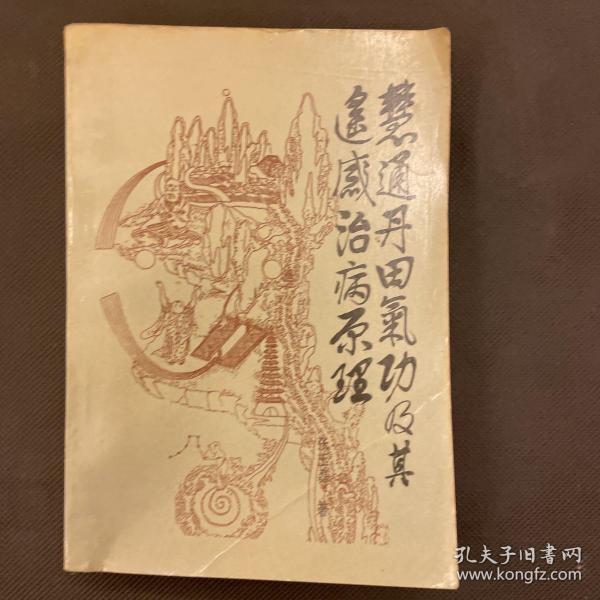 慧通丹田氣功及其
遙感治病原理
著
孔夫子旧书网
www.kongfz.com